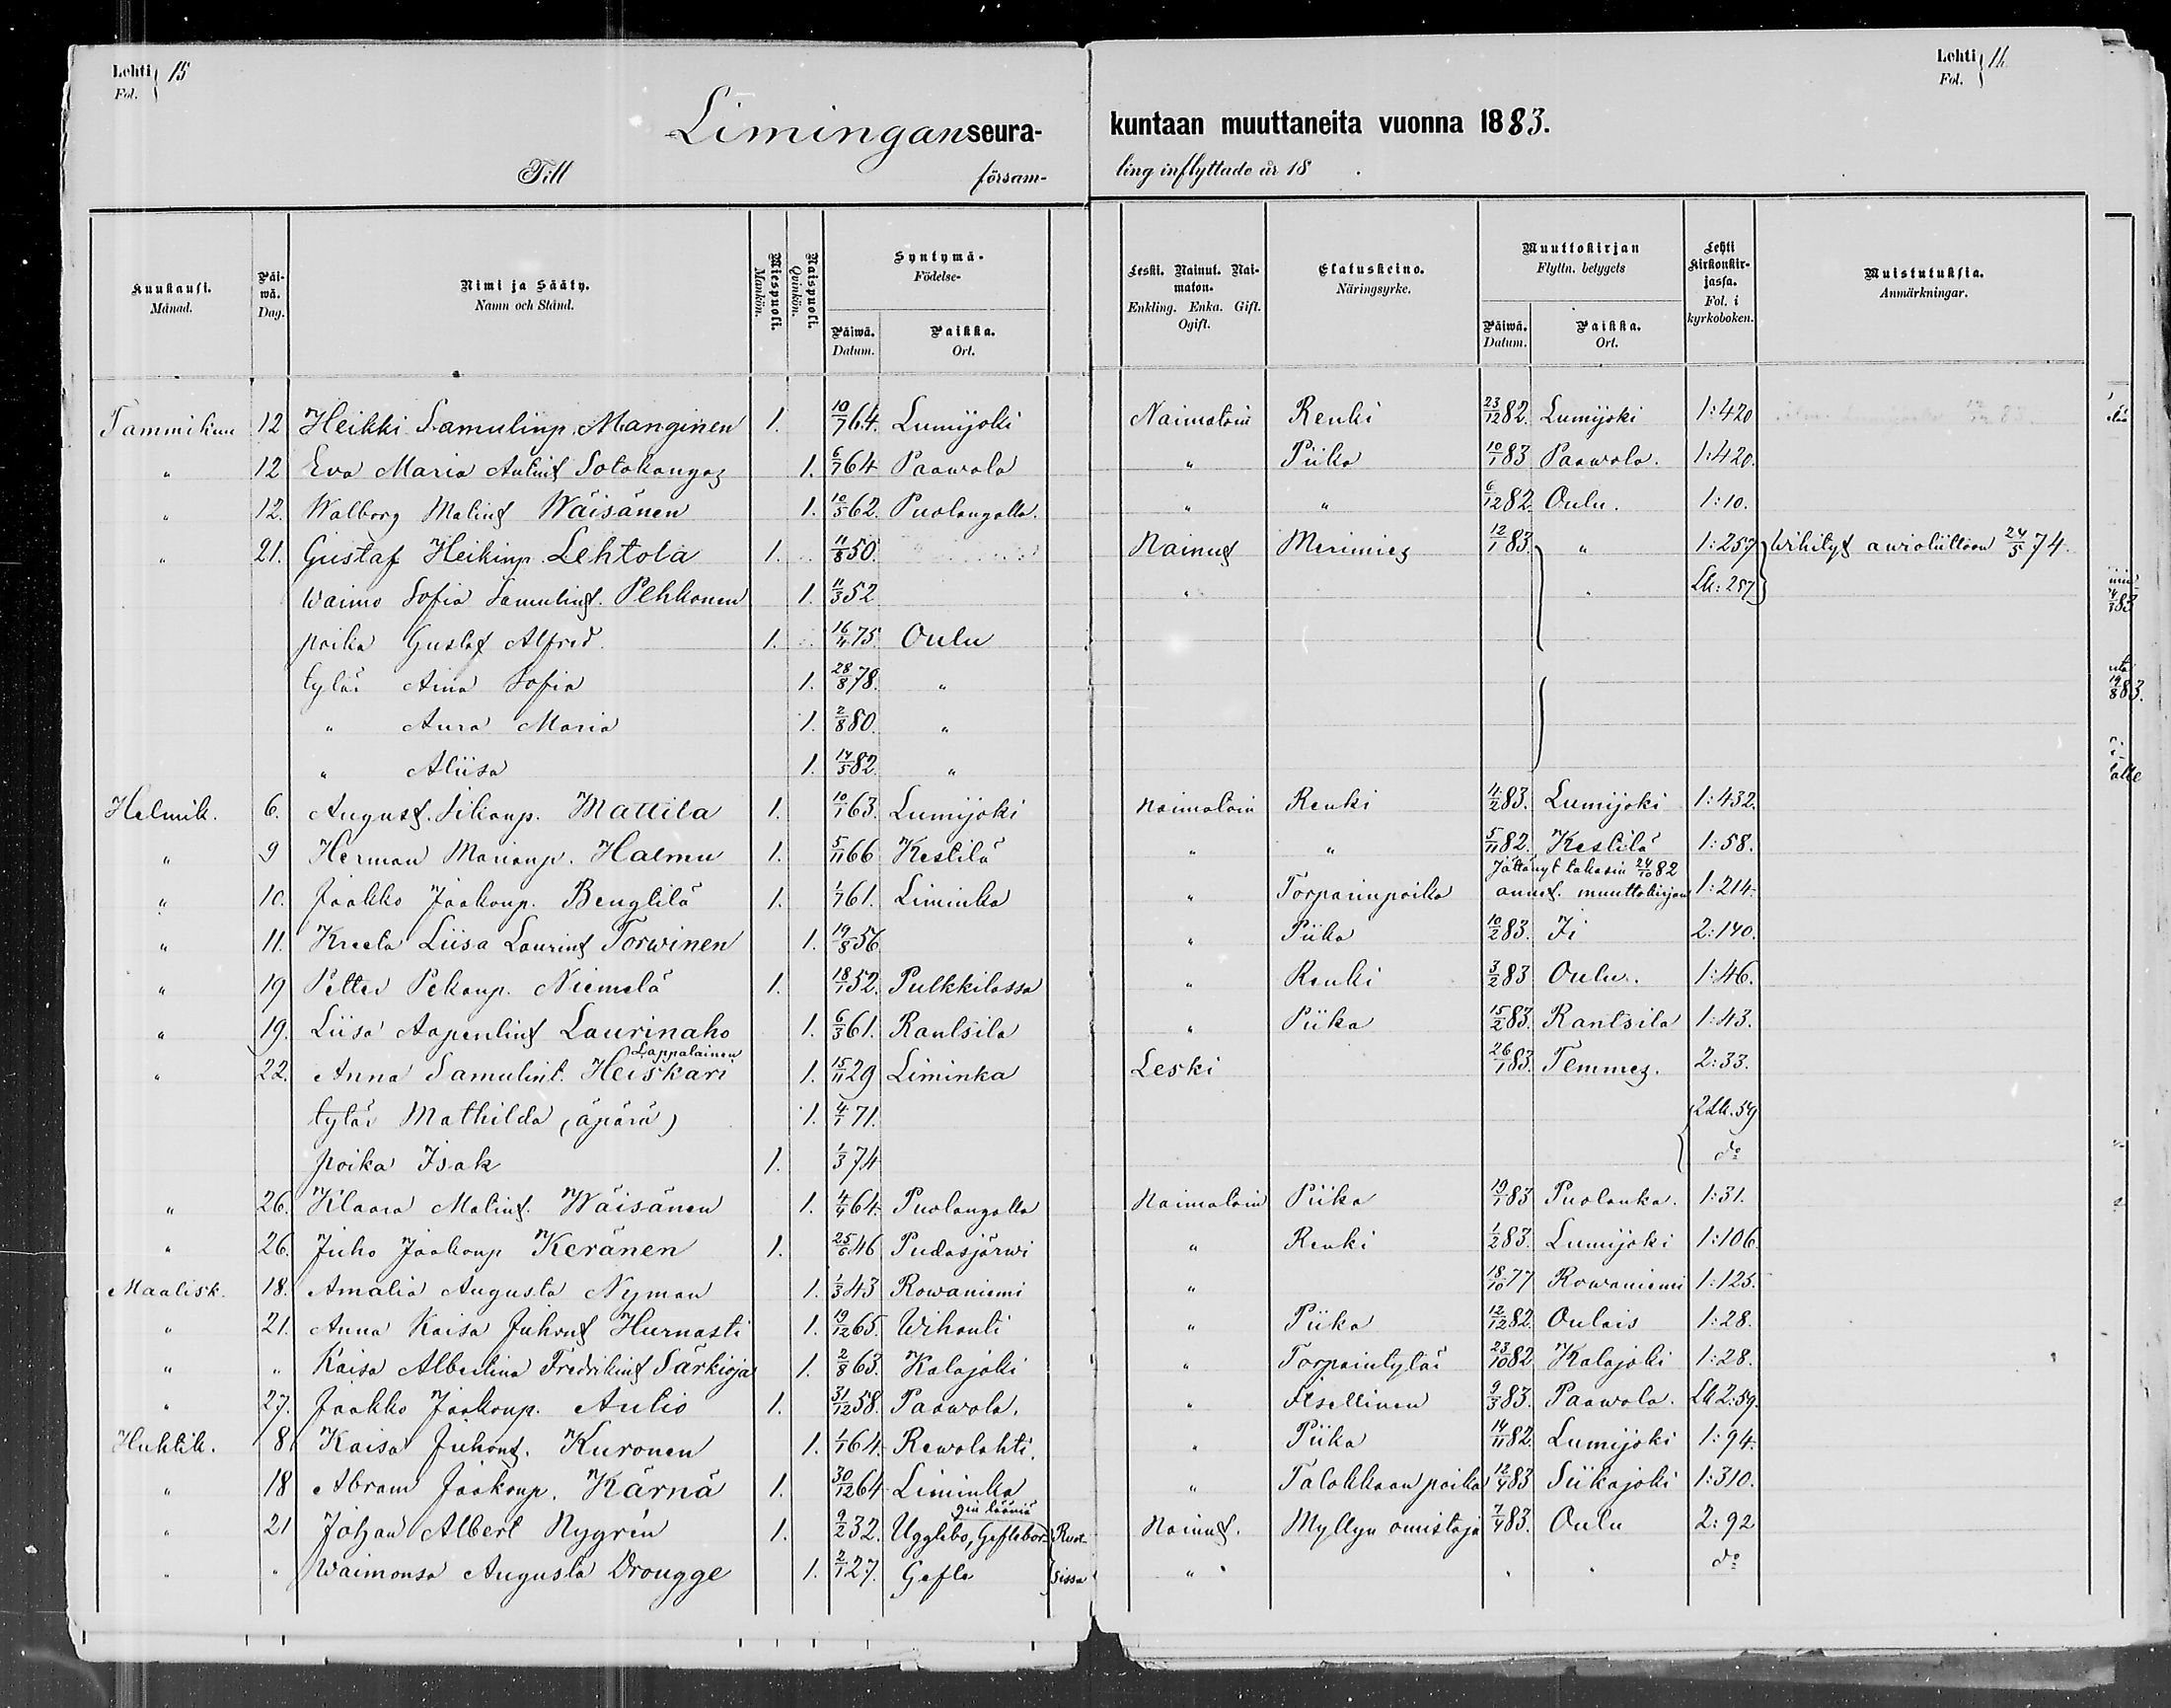 Lehti } 15
Fol.
Lehti } 16
Fol.
Liminganseura- kuntaan muuttaneita vuonna 1883.
Till församling inflyttade år 18 .
Kuukausi. Månad. | Päiwä. Dag. | Nimi ja Sääty. Namn och Stånd. | Miespuoli. Mankön. | Naispuoli. Quinkön. | Syntymä- Födelse- Päiwä. Datum. | Paikka. Ort. | Leski. Nainut. Naimaton. Enkling. Enka. Gift. Ogift. | Elatuskeino. Näringsyrke. | Muuttokirjan Flyttn. betygets Päiwä. Datum. | Paikka. Ort. | Lehti Kirkonkirjassa. Fol. i kyrkoboken. | Muistutuksia. Anmärkningar.
Tammikuu 12 Heikki Samulinp. Manginen 1. 10/7 64. Lumijoki Naimatoin Renki 23/12 82. Lumijoki 1:420
" 12 Eva Maria Antint Sotakangas 1. 6/7 64 Paawola " Piika 10/1 83 Paawola. 1:420.
" 12. Walborg Malint Wäisänen 1. 10/5 62. Puolangalla. " " 6/12 82. Oulu. 1:10.
" 21. Gustaf Heikinp. Lehtola 1. 11/8 50. Nainut Merimies 12/1 83. " 1:257 Wihityt awioliittoon 24/5 74.
Waimo Sofia Samulint. Pehkonen 1. 11/3 52 " " Lk:257
poika Gustaf Alfred. 1. 16/4 75. Oulu
tytär Aina Sofia 1. 28/8 78. "
" Aura Maria 1. 2/8 80. "
" Aliisa 1. 14/5 82. "
Helmik. 6. August. Sikanp. Mattila 1. 10/1 63. Lumijoki Naimatoin Renki 4/2 83. Lumijoki 1:432.
" 9 Herman Marianp. Halmu 1. 5/11 66 Kestilä " " 5/11 82. Kestilä 1:58.
" 10. Jaakko Jaakonp. Bengtilä 1. 1/7 61. Liminka " Torparinpoika Jättänyt takasin 24/10 82 annet. muuttokirjan 1:214.
" 11. Kreeta Liisa Laurint Torwinen 1. 19/8 56 " Piika 10/2 83. Ii 2:140.
" 19 Petter Pekanp. Niemelä 1. 18/1 52. Pulkkilassa " Renki 3/2 83 Oulu. 1:46.
" 19. Liisa Aapeulint Laurinaho 1. 6/3 61. Rantsila " Piika 15/2 83. Rantsila 1:43.
Lappalainen
" 22. Anna Samulint. Heiskari 1. 15/11 29 Liminka Leski 26/1 83. Temmes. 2:33.
tytär Mathilda (äpärä) 1. 4/1 71. 2Lk.59
poika Isak 1. 1/3 74 do
" 26. Klaara Malint. Wäisänen 1. 4/4 64. Puolangalla Naimatoin Piika 19/1 83 Puolanka. 1:31.
" 26. Juho Jaakonp Keränen 1. 25/6 46 Pudasjärwi " Renki 1/2 83. Lumijoki 1:106.
Maalisk. 18. Amalia Augusta Nyman 1. 1/3 43 Rowaniemi " 18/10 77 Rowaniemi 1:125.
" 21. Anna Kaisa Juhont Hurnasti 1. 19/12 65. Wihanti " Piika 12/12 82. Oulais 1:28.
" " Kaisa Albertina Fredrikint Särkioja 1. 2/8 63. Kalajoki " Torparintytär 23/10 82 Kalajoki 1:28.
" 27. Jaakko Jaakonp. Aulio 1. 31/12 58. Paawola. " Itsellinen 9/3 83. Paawola. Lk 2:59.
Huhtik. 8 Kaisa Juhont. Kuronen 1. 1/1 64. Rewolahti. " Piika 14/11 82. Lumijoki 1:94.
" 18 Abram Jaakonp. Kärnä 1. 30/12 64 Liminka " Talokkaan poika 12/4 83 Siikajoki 1:310.
" 21 Johan Albert Nygrén 1. 9/2 32. Ugglebo, Gefleborgin lääniä Ruot- Nainut. Myllyn omistaja 7/4 83. Oulu 2:92
" " Waimonsa Augusta Drougge 1. 2/1 27. Gefle sissa " " " do